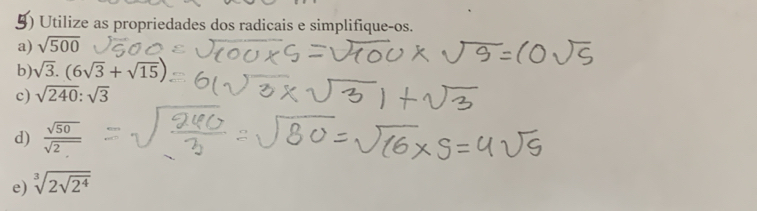 5) Utilize as propriedades dos radicais e simplifique-os.
a) √500 √500 = √100×5 = √100 × √5 = 10√5
b) √3. (6√3 + √15) = 6(√3×√3) + √3
c) √240: √3
d) √50/√2 = √240/3 = √80 = √16×5 = 4√5
e) ∛2√2⁴